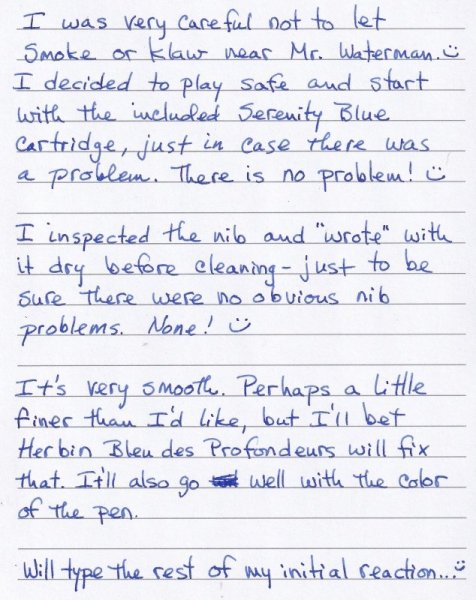 I was very careful not to let
Smoke or Klaw near Mr. Waterman. :)
I decided to play safe and start
with the included Serenity Blue
cartridge, just in case there was
a problem. There is no problem! :)
I inspected the nib and "wrote" with
it dry before cleaning - just to be
sure there were no obvious nib
problems. None! :)
It's very smooth. Perhaps a little
finer than I'd like, but I'll bet
Herbin Bleu des Profondeurs will fix
that. It'll also go well with the color
of the pen.
Will type the rest of my initial reaction... :)